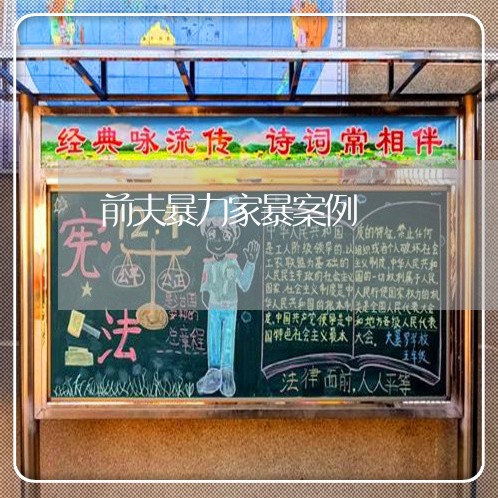 经典咏流传 诗词常相伴
前夫暴力家暴案例
宪法
12.4
公平
公正
总章程
中华人民共和国
是工人阶级领导的,以
工农联盟为基础的
人民民主专政的社会主义
国家,社会主义制度是中
华人民共和国的根本制
度,中国共产党领导是中
国特色社会主义最本
质的特征,禁止任何
组织或者个人破坏社会
主义制度,中华人民共和
国的一切权利属于人民,
人民行使国家权力的机
关是全国人民代表大会
和地方各级人民代表
大会.
五年级
法律面前,人人平等